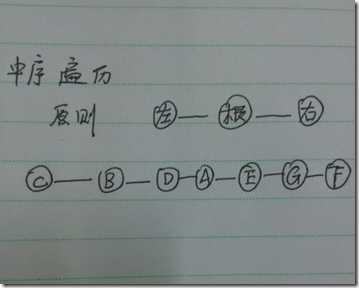 中序遍历
原则 左—根—右
C—B—D—A—E—G—F